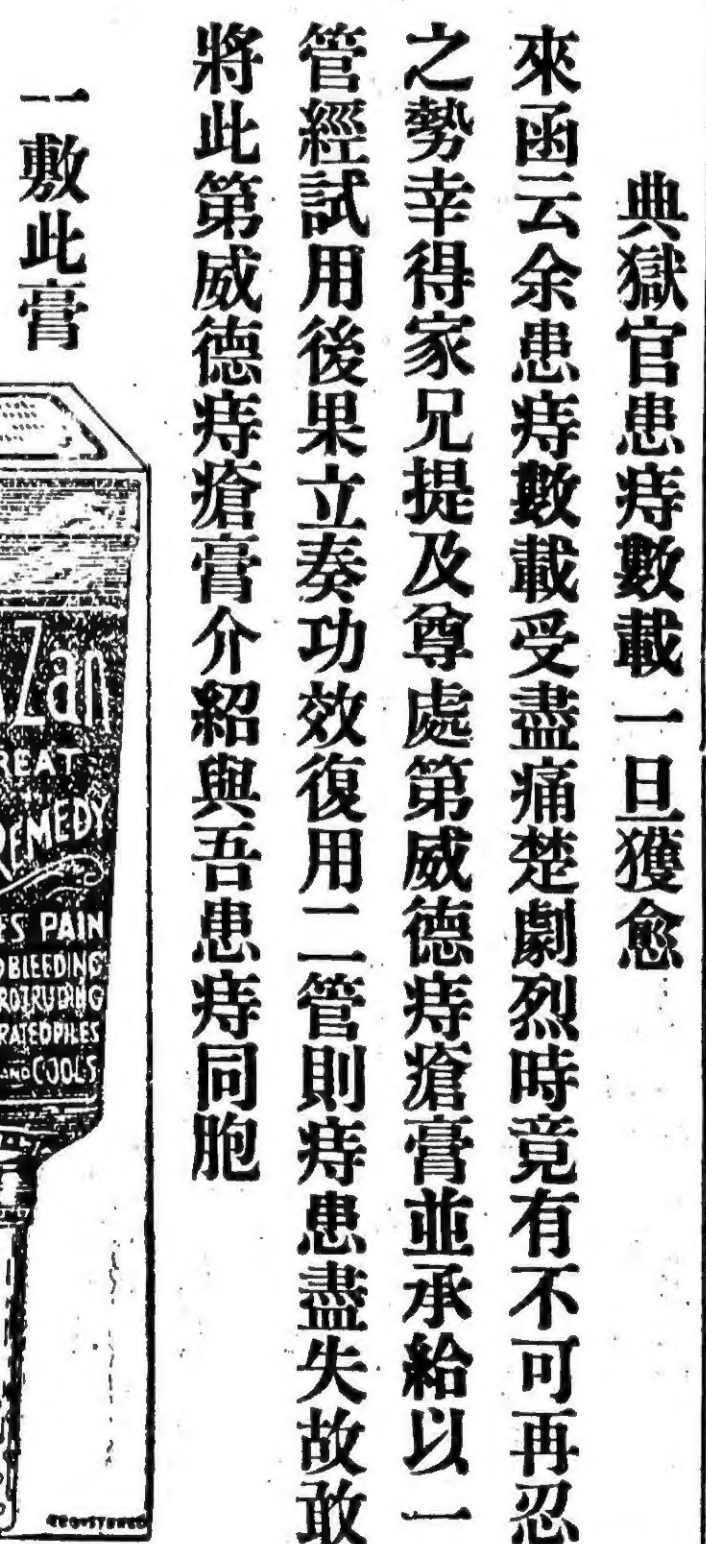 典獄官患痔數載一旦獲愈
來函云余患痔數載受盡痛楚劇烈時竟有不可再忍
之勢幸得家兄提及尊處第威德痔瘡膏並承給以一
管經試用後果立奏功效復用二管則痔患盡失故敢
將此第威德痔瘡膏介紹與吾患痔同胞
一敷此膏
Zan
REAT
REMEDY
ES PAIN
BLEEDING
ROTRUDING
RATED PILES
AND COOLS
REGISTERED